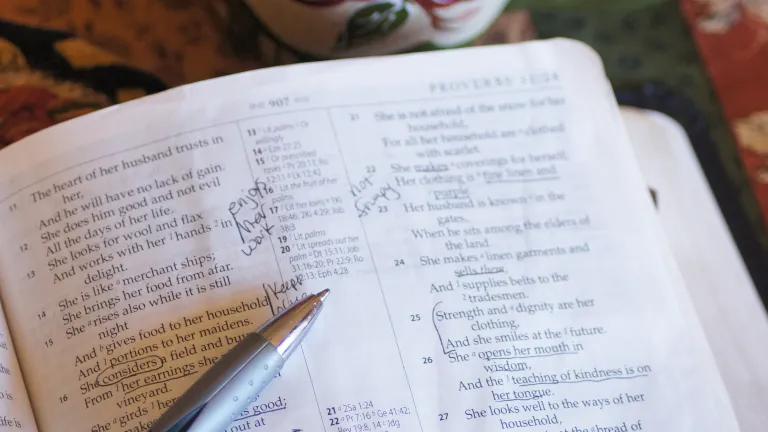 907
PROVERBS
11 The heart of her husband trusts in
her,
And he will have no lack of gain.
12 She does him good and not evil
All the days of her life.
13 She looks for wool and flax
And works with her 1 hands 2 in
delight.
14 She is like a merchant ships;
She brings her food from afar.
15 She a rises also while it is still
night
And b gives food to her household
And 1 portions to her maidens.
16 She considers a field and buys
From 1 her earnings she
vineyard.
She a girds 1 her
is good;
out at
13 1 Lit palms 2 Or
willingly
14 a Ezek 27:25
15 1 Or prescribed
16 1 Lit the fruit of her
palms
19 1 Lit palms
20 1 Lit spreads out her
palm a Deut 15:11; Job
31:16-20; Pr 22:9; Ro
12:13; Eph 4:28
21 a 2Sa 1:24
enjoy
her
work
not
21 She is not afraid of the snow for her
household,
For all her household are a clothed
with scarlet.
22 She makes a coverings for herself;
Her clothing is b fine linen and
purple.
23 Her husband is known a in the
gates,
When he sits among the elders of
the land.
24 She makes a linen garments and
sells them,
And 1 supplies belts to the
2 tradesmen.
25 Strength and a dignity are her
clothing,
And she smiles at the 1 future.
26 She a opens her mouth in
wisdom,
And the 1 teaching of kindness is on
her tongue.
27 She looks well to the ways of her
household,
bread of